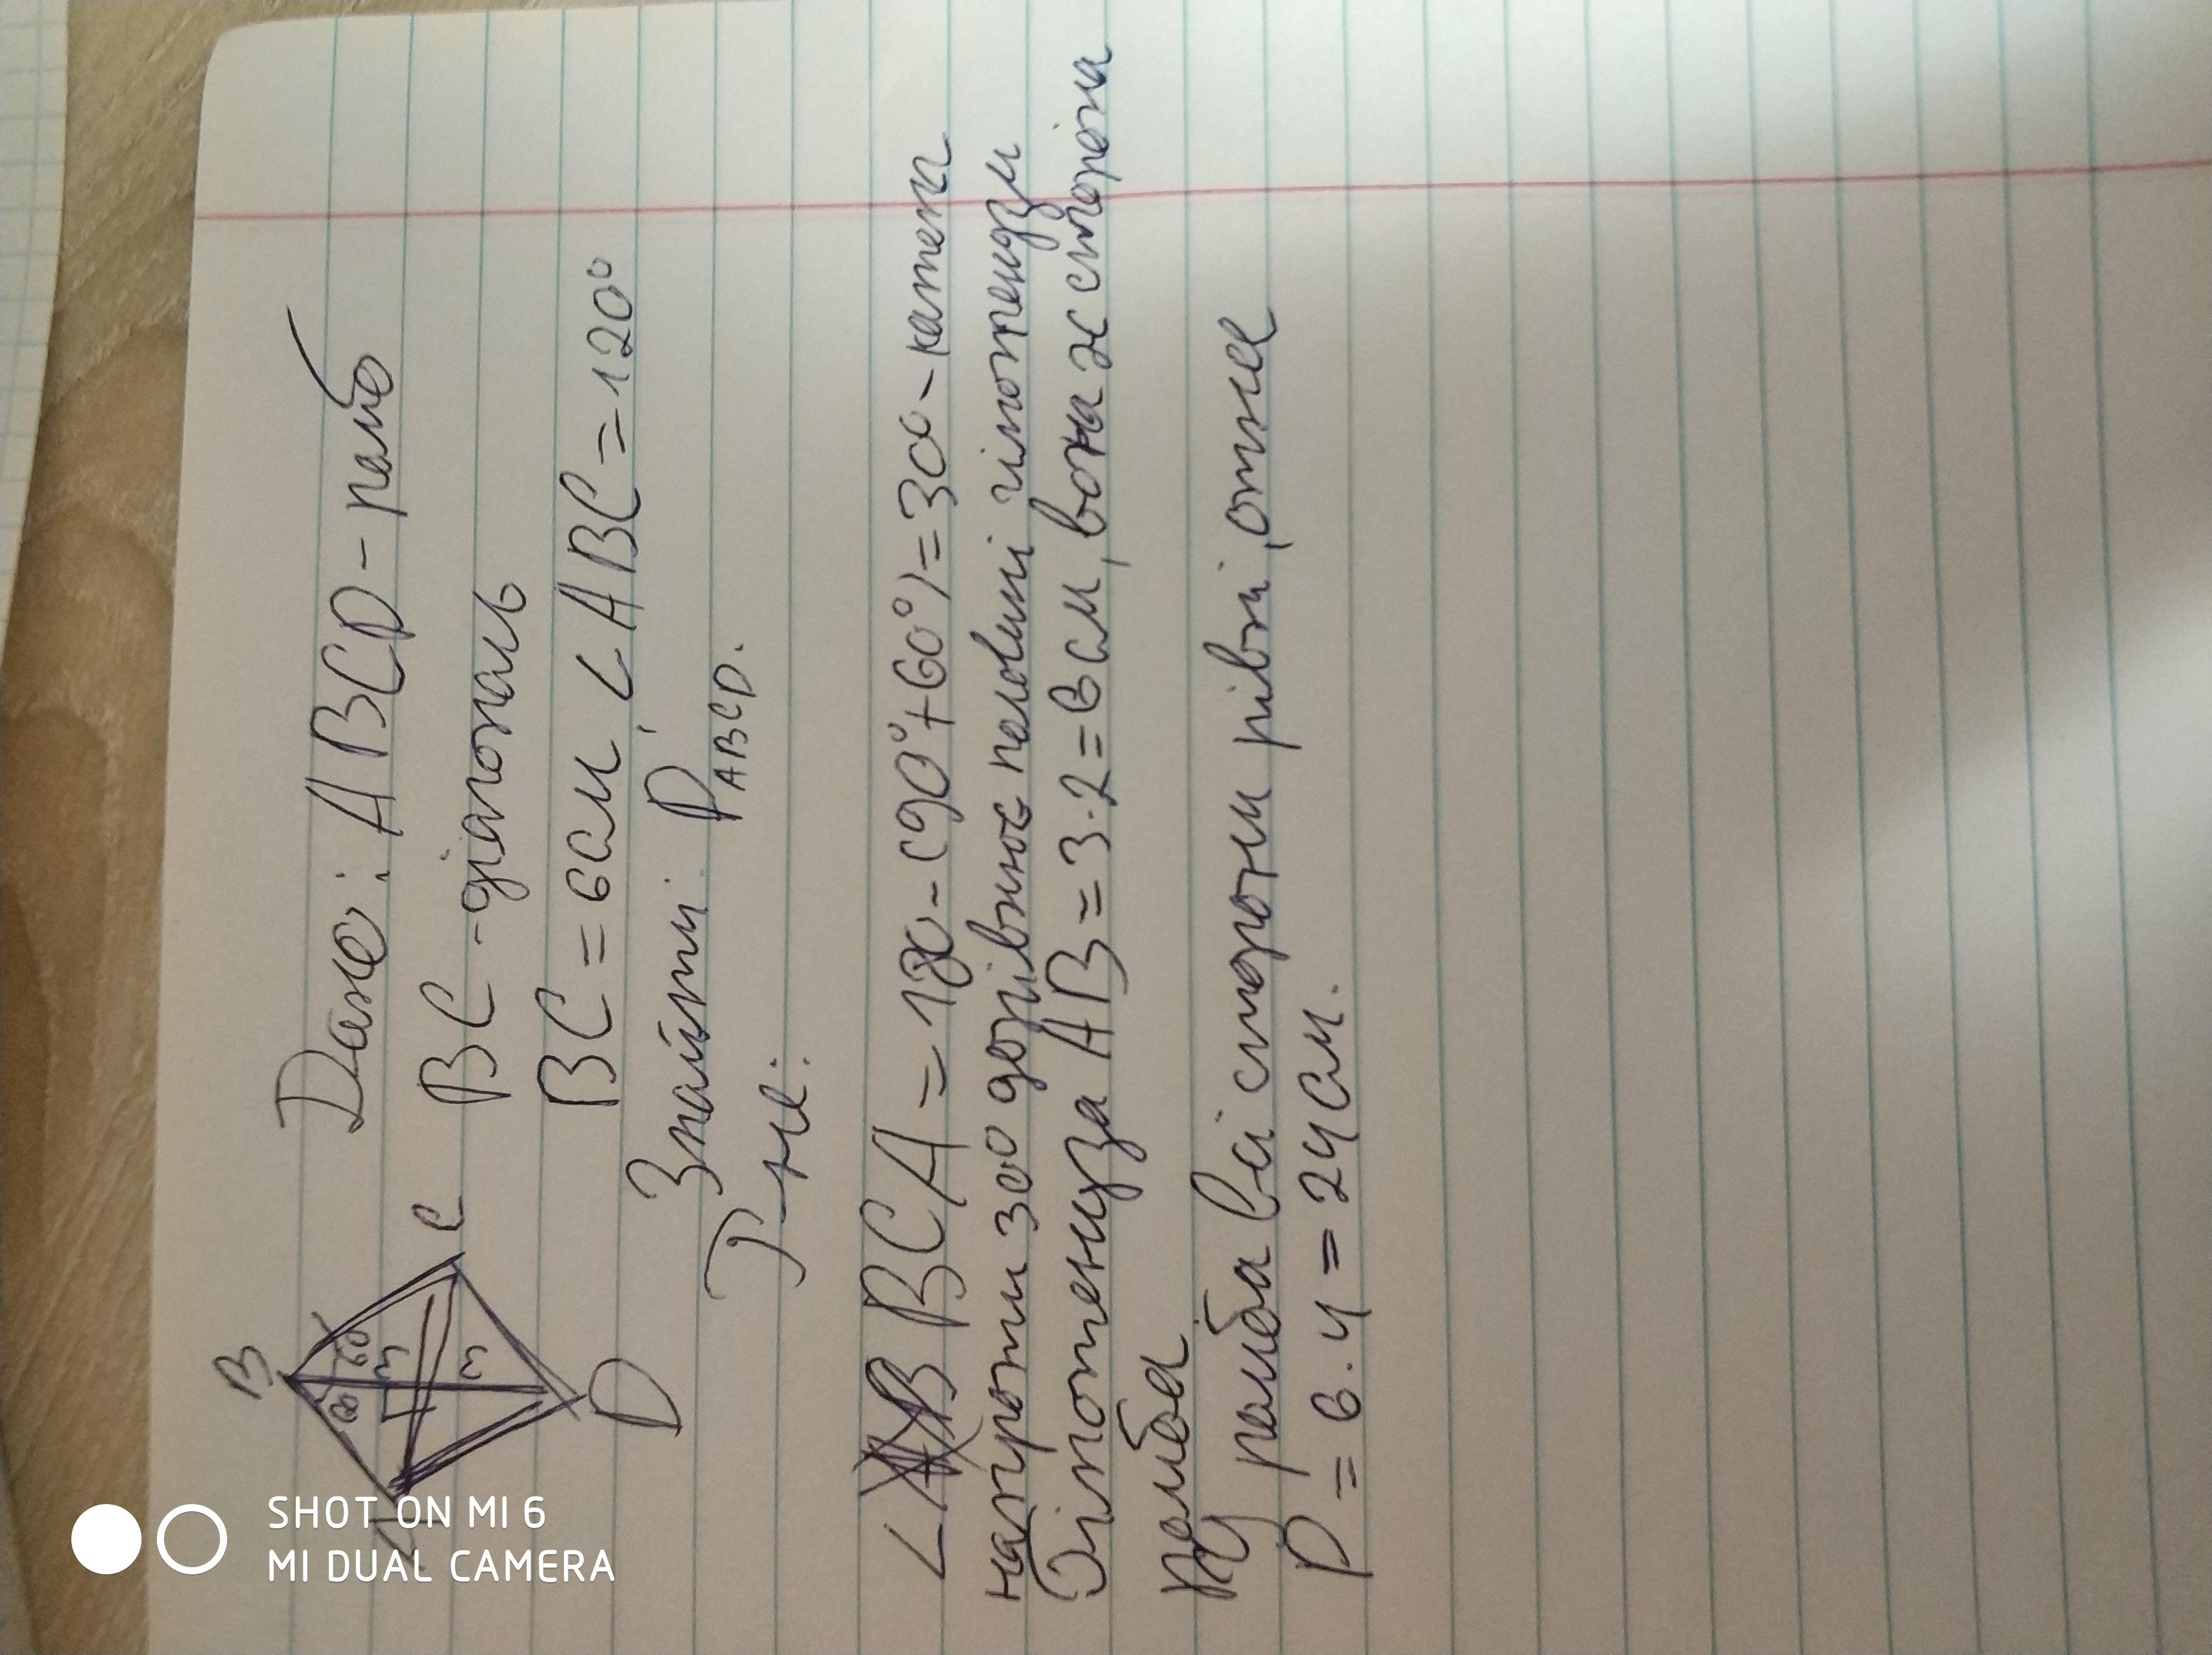 Дано: ABCD - ромб
BC - діагональ
BC = 6см, ∠ABC = 120°
Знайти: P ABCD.
Р-не:
B
60 60
3
3
A
C
D
∠BCA = 180 - (90° + 60°) = 30° - катет
напроти 30° дорівнює половині гіпотенузи
Гіпотенуза AB = 3·2 = 6 см, вона ж сторона
ромба
У ромба всі сторони рівні, отже
P = 6·4 = 24 см.
SHOT ON MI 6
MI DUAL CAMERA